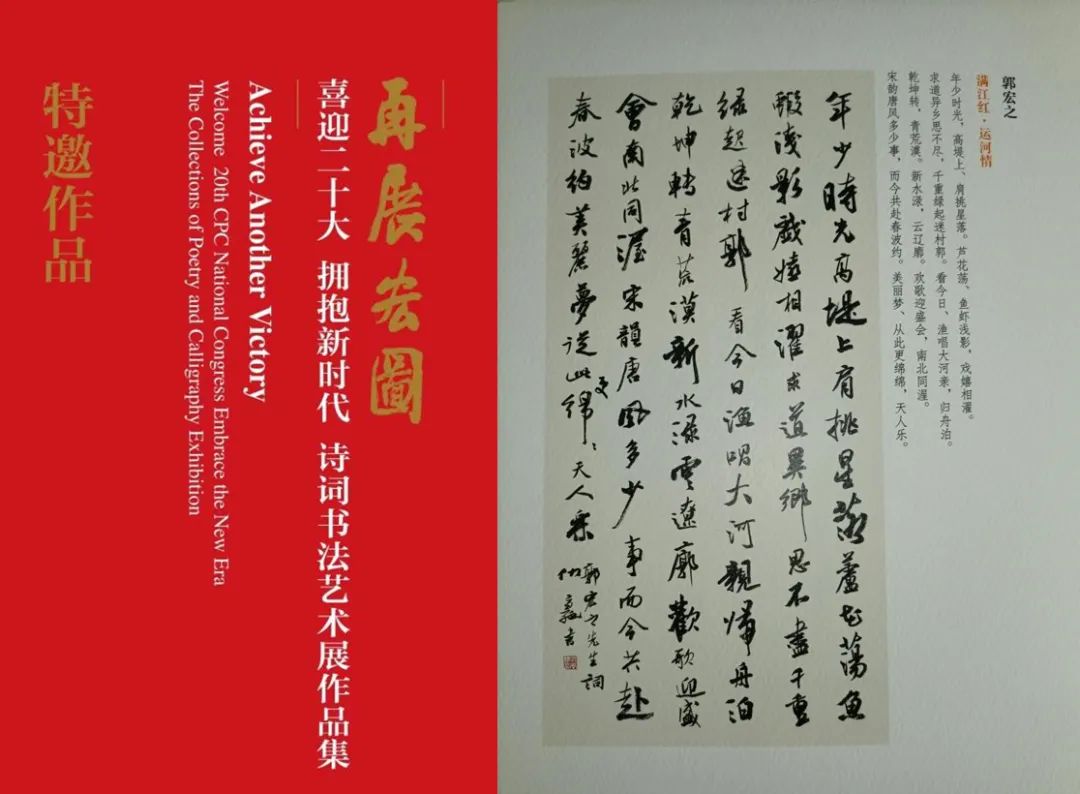 再展宏圖
喜迎二十大 拥抱新时代 诗词书法艺术展作品集
Achieve Another Victory
Welcome 20th CPC National Congress Embrace the New Era
The Collections of Poetry and Calligraphy Exhibition
特邀作品
郭宏之
满江红·运河情
年少时光，高堤上、肩挑星落。芦花荡、鱼虾浅影，戏嬉相濯。
求道异乡思不尽，千重缘起迷村郭。看今日、渔唱大河亲，归舟泊。
乾坤转，青荒漠。新水渌，云辽廓。欢歌迎盛会，南北同渥。
宋韵唐风多少事，而今共赴春波约。美丽梦、从此更绵绵，天人乐。
年少時光高堤上肩挑星落蘆花蕩魚
蝦淺影戲嬉相濯求道異鄉思不盡千重
緣起迷村郭看今日漁唱大河親歸舟泊
乾坤轉青荒漠新水渌雲遼廓歡歌迎盛
會南北同渥宋韻唐風多少事而今共赴
春波約美麗夢從此更綿綿天人樂
郭宏之先生詞
書